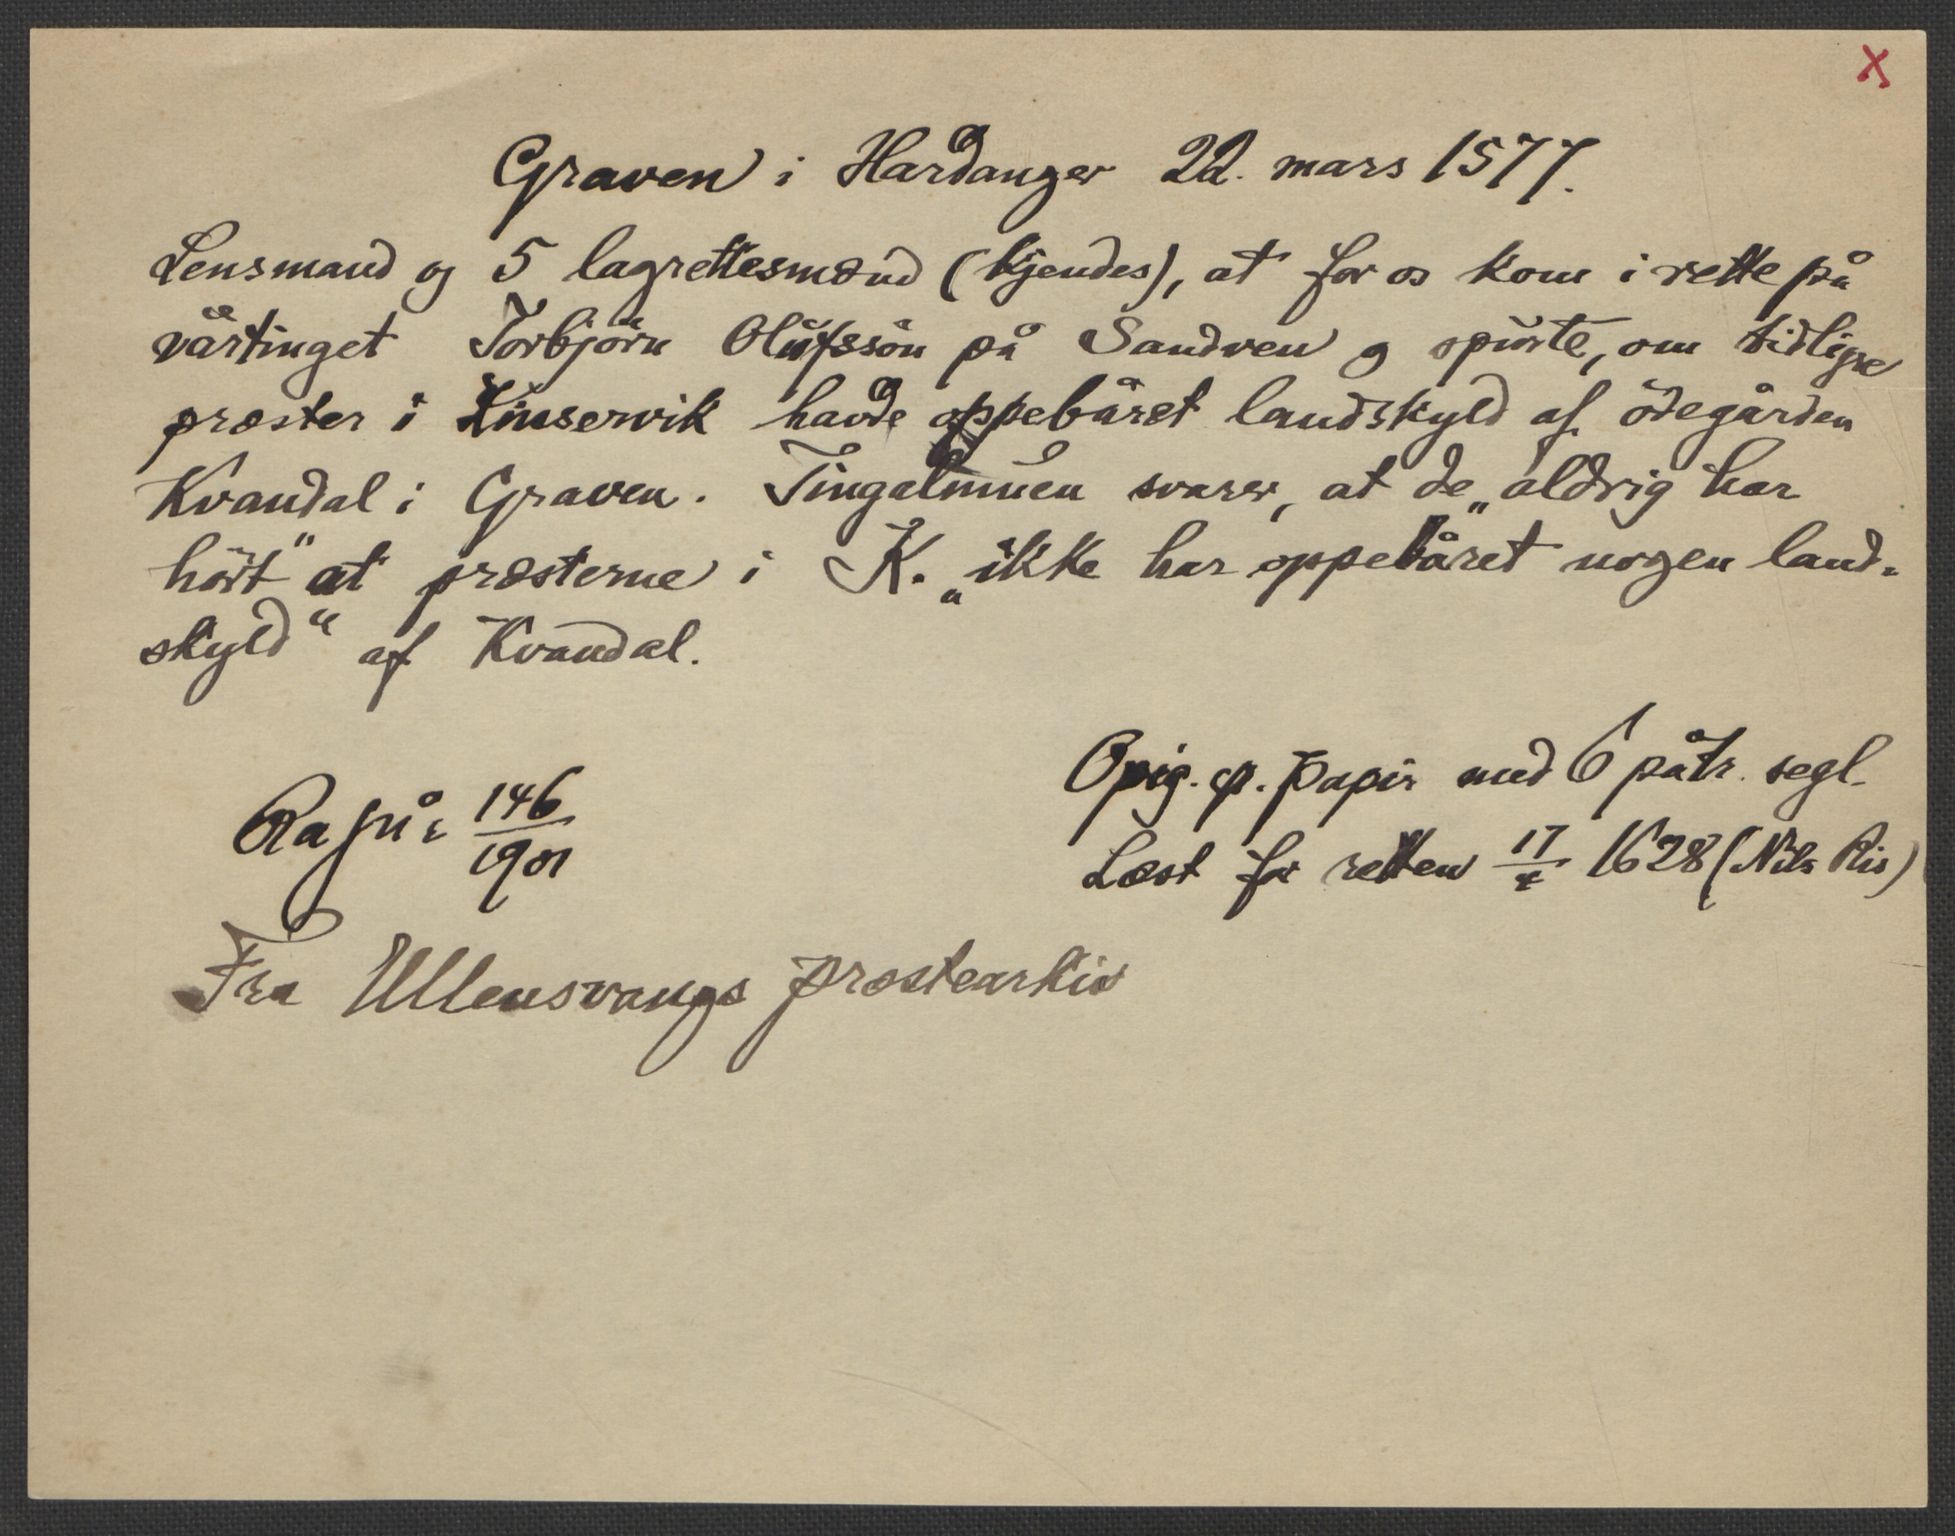 X
Graven i Hardanger 22. mars 1577.
Lensmand og 5 lagrettesmænd (kjendes), at for os kom i rette på
vårtinget Torbjörn Olufssön på Sandven og spurte, om tidligre
præster i Kinservik havde oppebåret landskyld af ödegården
Kvandal i Graven. Tingalmuen svarer, at de „aldrig har
hört" at præsterne i K. „ikke har oppebåret nogen land-
skyld" af Kvandal.
Orig. p. papir med 6 påtr. segl.
Ra 146
1901
Læst for retten 17 1628 (Nils Ris)
Fra Ullensvangs prestearkiv